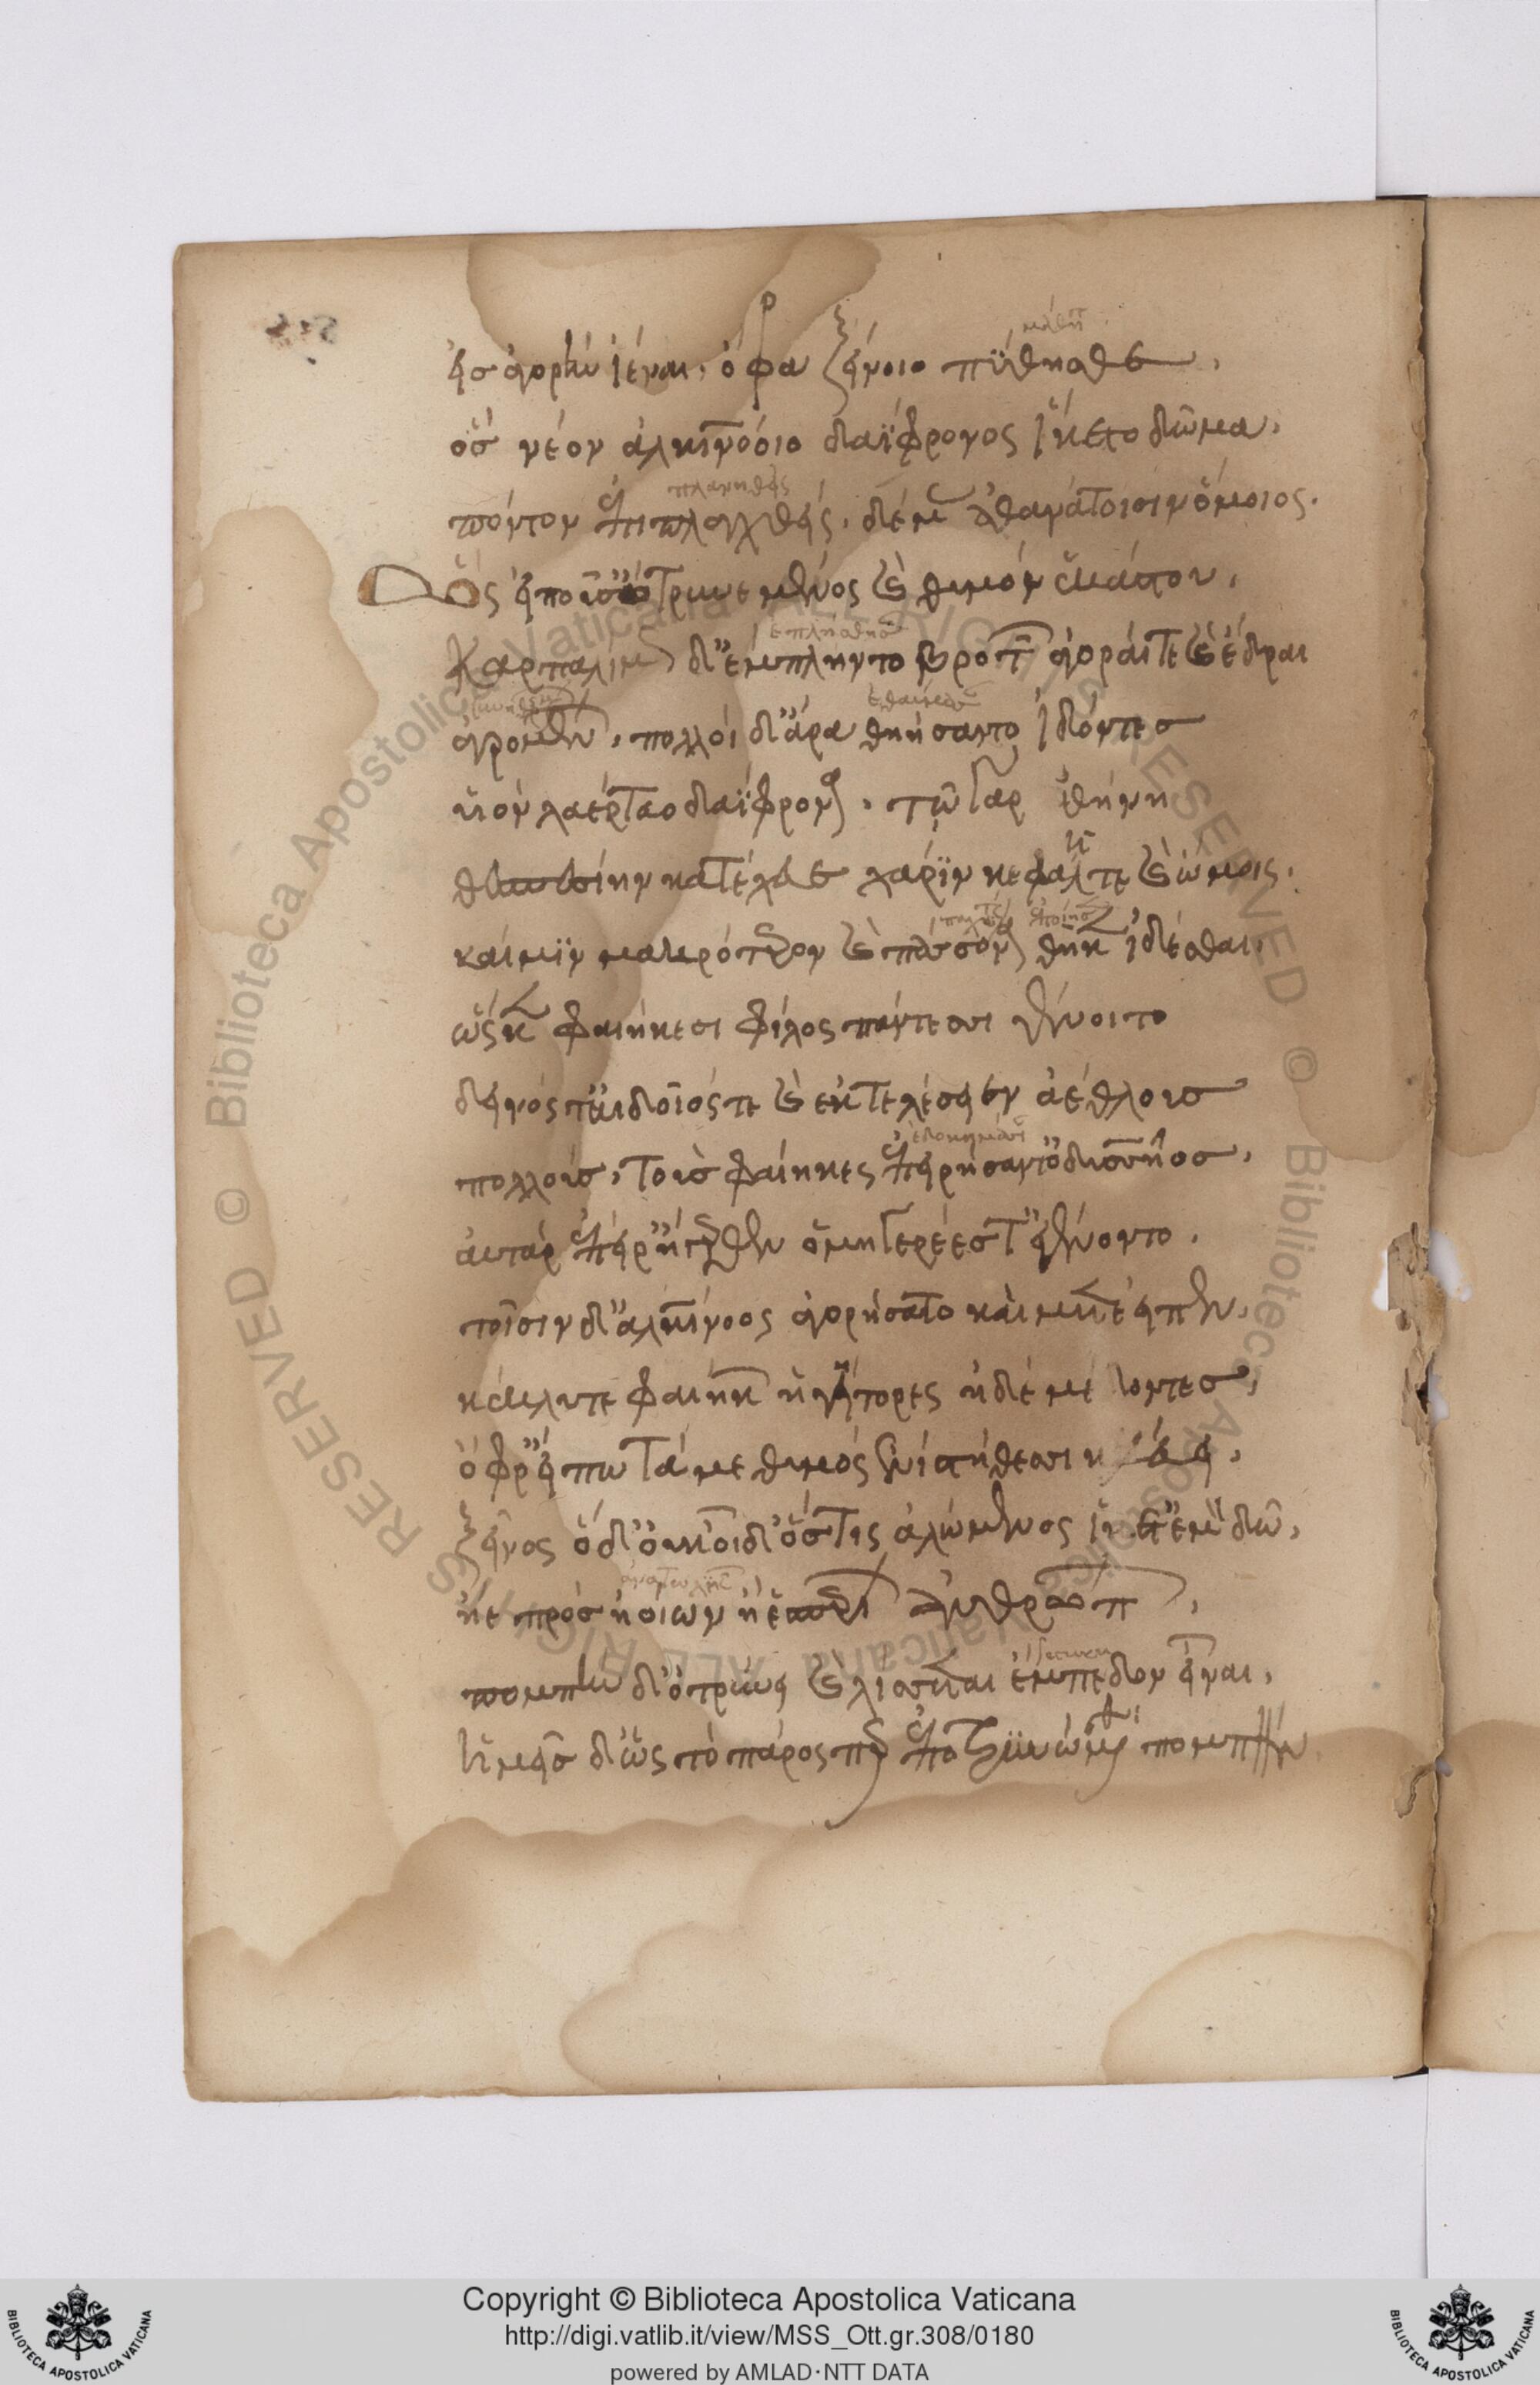 εἰς ἀγορὴν ἰέναι, ὄφρα ξείνοιο πύθησθε,
μάθητε
ὃς νέον ἀλκινόοιο δαΐφρονος ἵκετο δῶμα,
πλανηθεὶς
πόντον ἐπιπλαγχθείς, δέμας ἀθανάτοισιν ὅμοιος.
ὣς εἰποῦσ' ὤτρυνε μένος καὶ θυμὸν ἑκάστου,
ἐπλήσθησαν
καρπαλίμως δ' ἔμπληντο βροτῶν ἀγοραί τε καὶ ἕδραι
ἐθαύμασαν
ἀγρομένων, πολλοὶ δ' ἄρα θηήσαντο ἰδόντες
υἱὸν λαέρταο δαΐφρονα. τῷ γὰρ ἀθήνη
θεσπεσίην κατέχευε χάριν κεφαλῇ τε καὶ ὤμοις.
ἐποίησε
καί μιν μακρότερον καὶ πάσσονα θῆκεν ἰδέσθαι,
ὥς κεν φαιήκεσι φίλος πάντεσσι γένοιτο
δεινός τ' αἰδοῖός τε καὶ ἐκτελέσειεν ἀέθλους
πολλούς, τοὺς φαίηκες ἐπειρήσαντ' ὀδυσσῆος,
αὐτὰρ ἐπεί ῥ' ἤγερθεν ὁμηγερέες τ' ἐγένοντο.
τοῖσιν δ' ἀλκίνοος ἀγορήσατο καὶ μετέειπεν,
κέκλυτε φαιήκων ἡγήτορες ἠδὲ μέδοντες,
ὄφρ' εἴπω τά με θυμὸς ἐνὶ στήθεσσι κελεύει,
ξεῖνος ὅδ' οὐκ οἶδ' ὅστις ἀλώμενος ἵκετ' ἐμὸν δῶ,
ἠὲ πρὸς ἠοίων ἢ ἑσπερίων ἀνθρώπων,
πομπὴν δ' ὀτρύνει καὶ λίσσεται ἔμπεδον εἶναι,
ἡμεῖς δ' ὡς τὸ πάρος περ ἐποτρυνώμεθα πομπήν
Copyright © Biblioteca Apostolica Vaticana
http://digi.vatlib.it/view/MSS_Ott.gr.308/0180
powered by AMLAD·NTT DATA